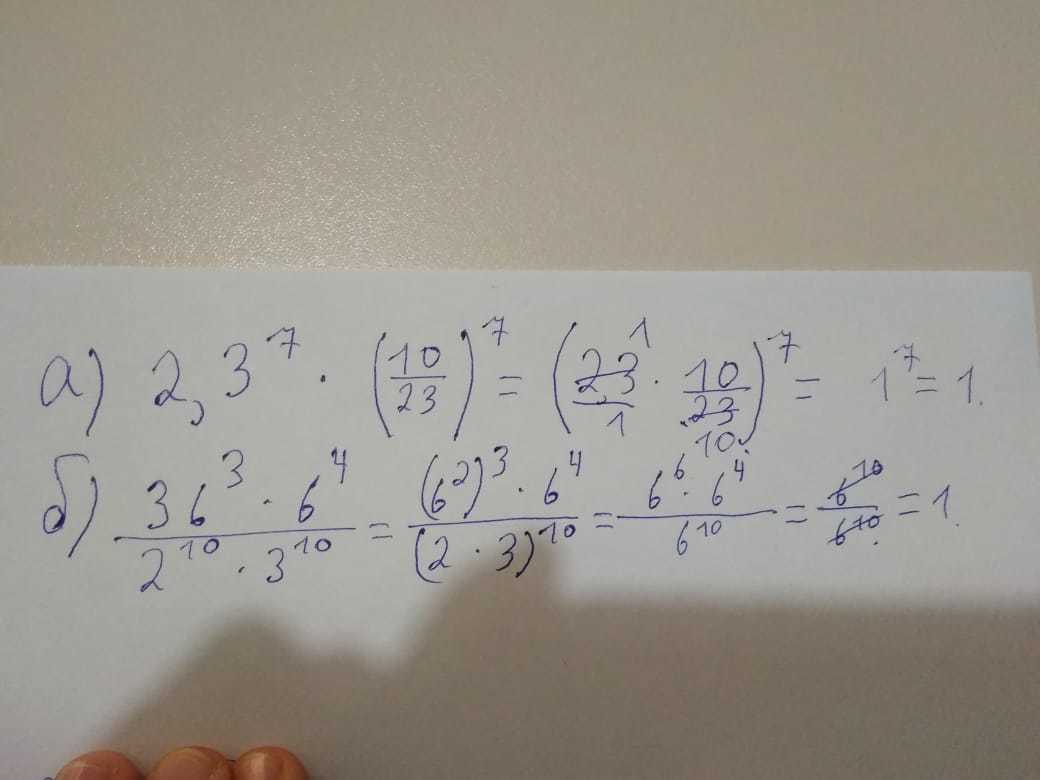 а) 2,3⁷ · (10/23)⁷ = (2,3/1 · 10/23)⁷ = 1⁷ = 1.
б) (36³ · 6⁴)/(2¹⁰ · 3¹⁰) = ((6²)³ · 6⁴)/(2 · 3)¹⁰ = (6⁶ · 6⁴)/6¹⁰ = 6¹⁰/6¹⁰ = 1.